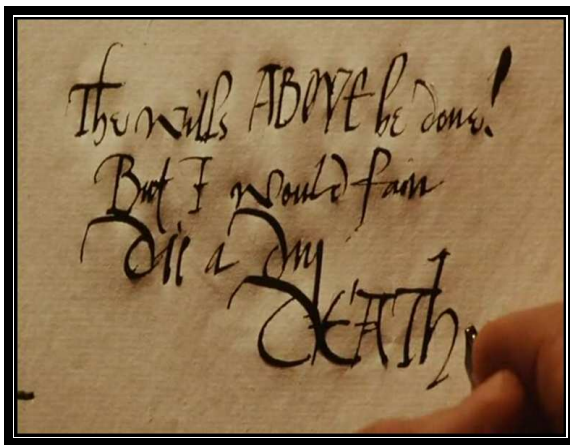 The wills ABOVE be done!
But I would fain
die a dry
dEATh